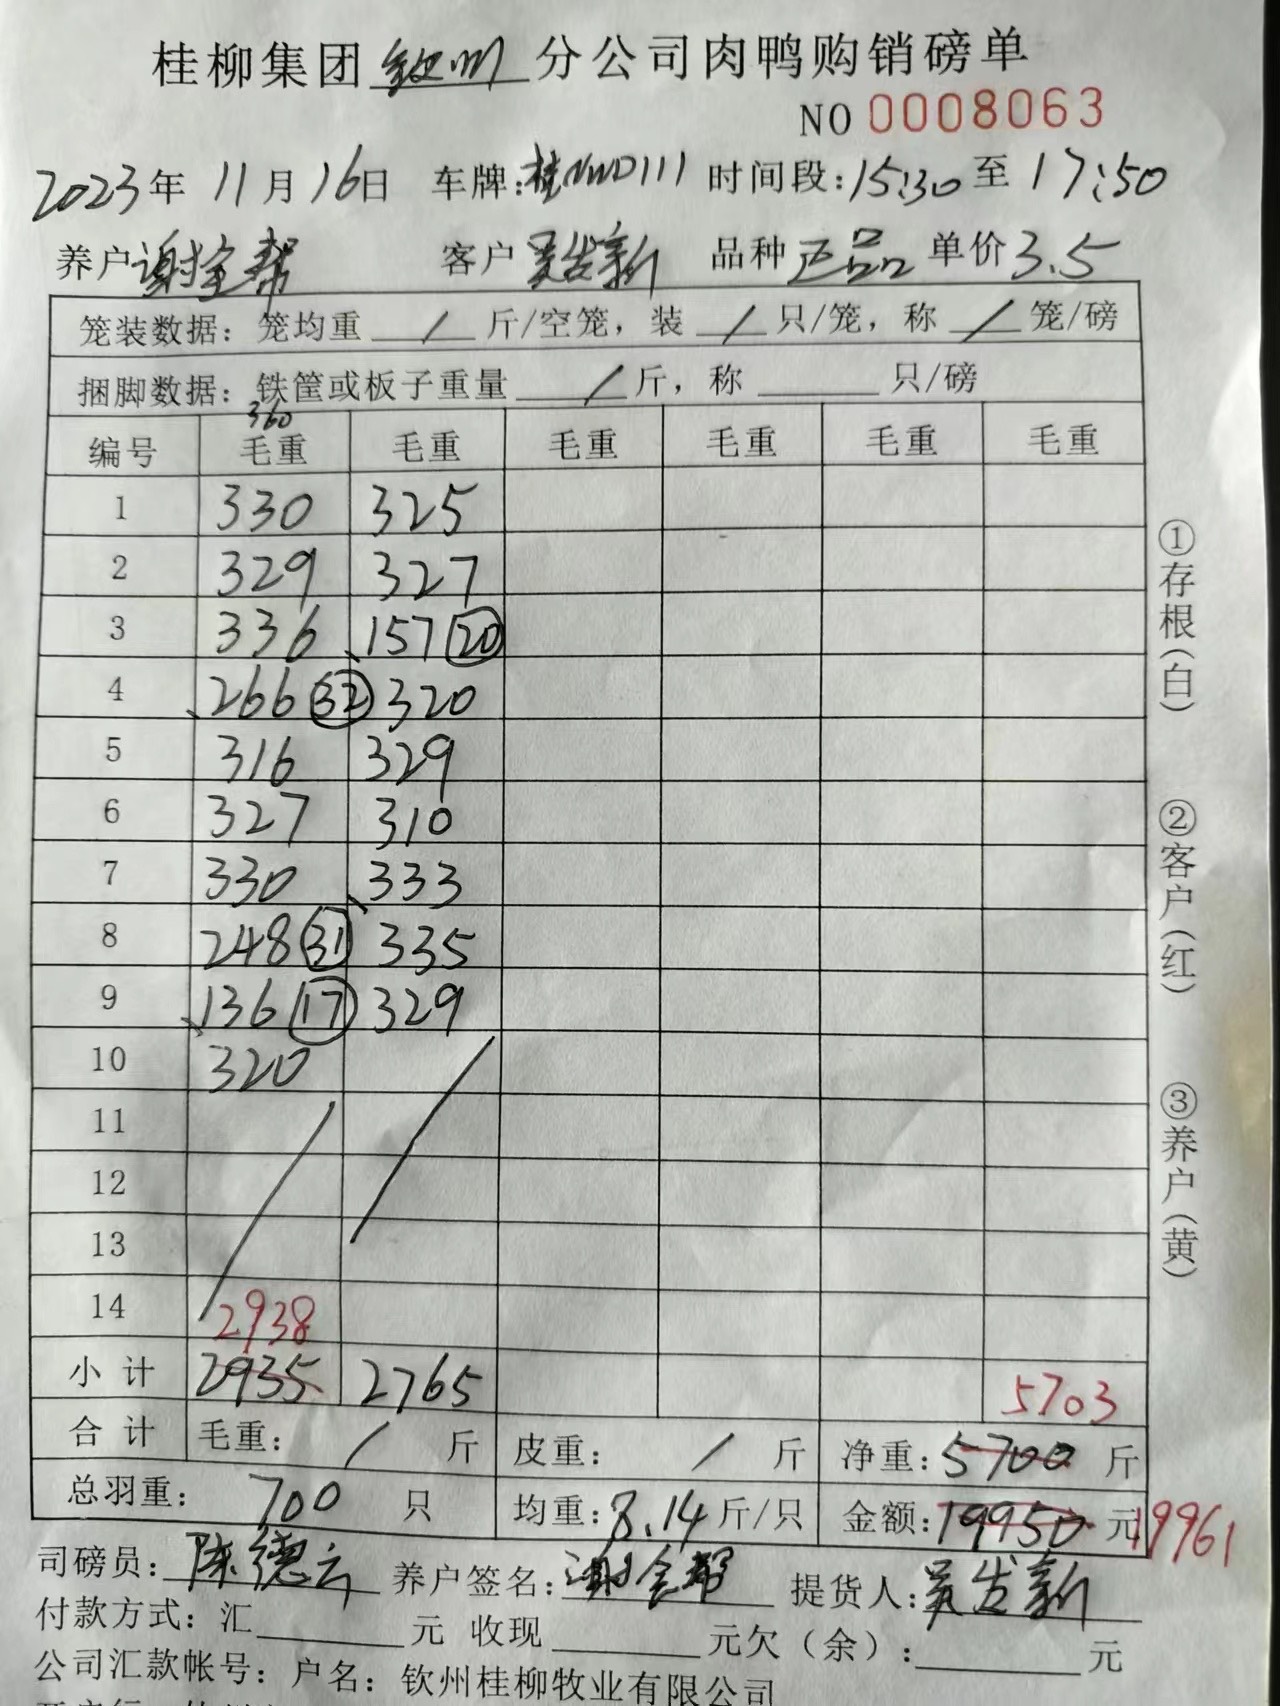 桂柳集团钦州分公司肉鸭购销磅单
NO 0008063
2023年 11月16日 车牌:桂 D111 时间段:15:30至17:50
养户谢金帮 客户吴发新 品种正品 单价3.5
笼装数据: 笼均重 / 斤/空笼, 装 / 只/笼, 称 / 笼/磅
捆脚数据: 铁筐或板子重量 / 斤, 称 只/磅
360
编号 毛重 毛重 毛重 毛重 毛重 毛重
1 330 325
2 329 327
3 336 157 ⑳
4 266 ㉜ 320
5 316 329
6 327 310
7 330 333
8 248 ㉛ 335
9 136 ⑰ 329
10 320
11
12
13
14 2938
小计 2935 2765 5703
合计 毛重: / 斤 皮重: / 斤 净重:5700 斤
总羽重: 700 只 均重:8.14斤/只 金额:19950元19961
司磅员:陈德云 养户签名:谢金帮 提货人:吴发新
付款方式: 汇 元 收现 元欠(余): 元
公司汇款帐号: 户名: 钦州桂柳牧业有限公司
①存根(白)
②客户(红)
③养户(黄)